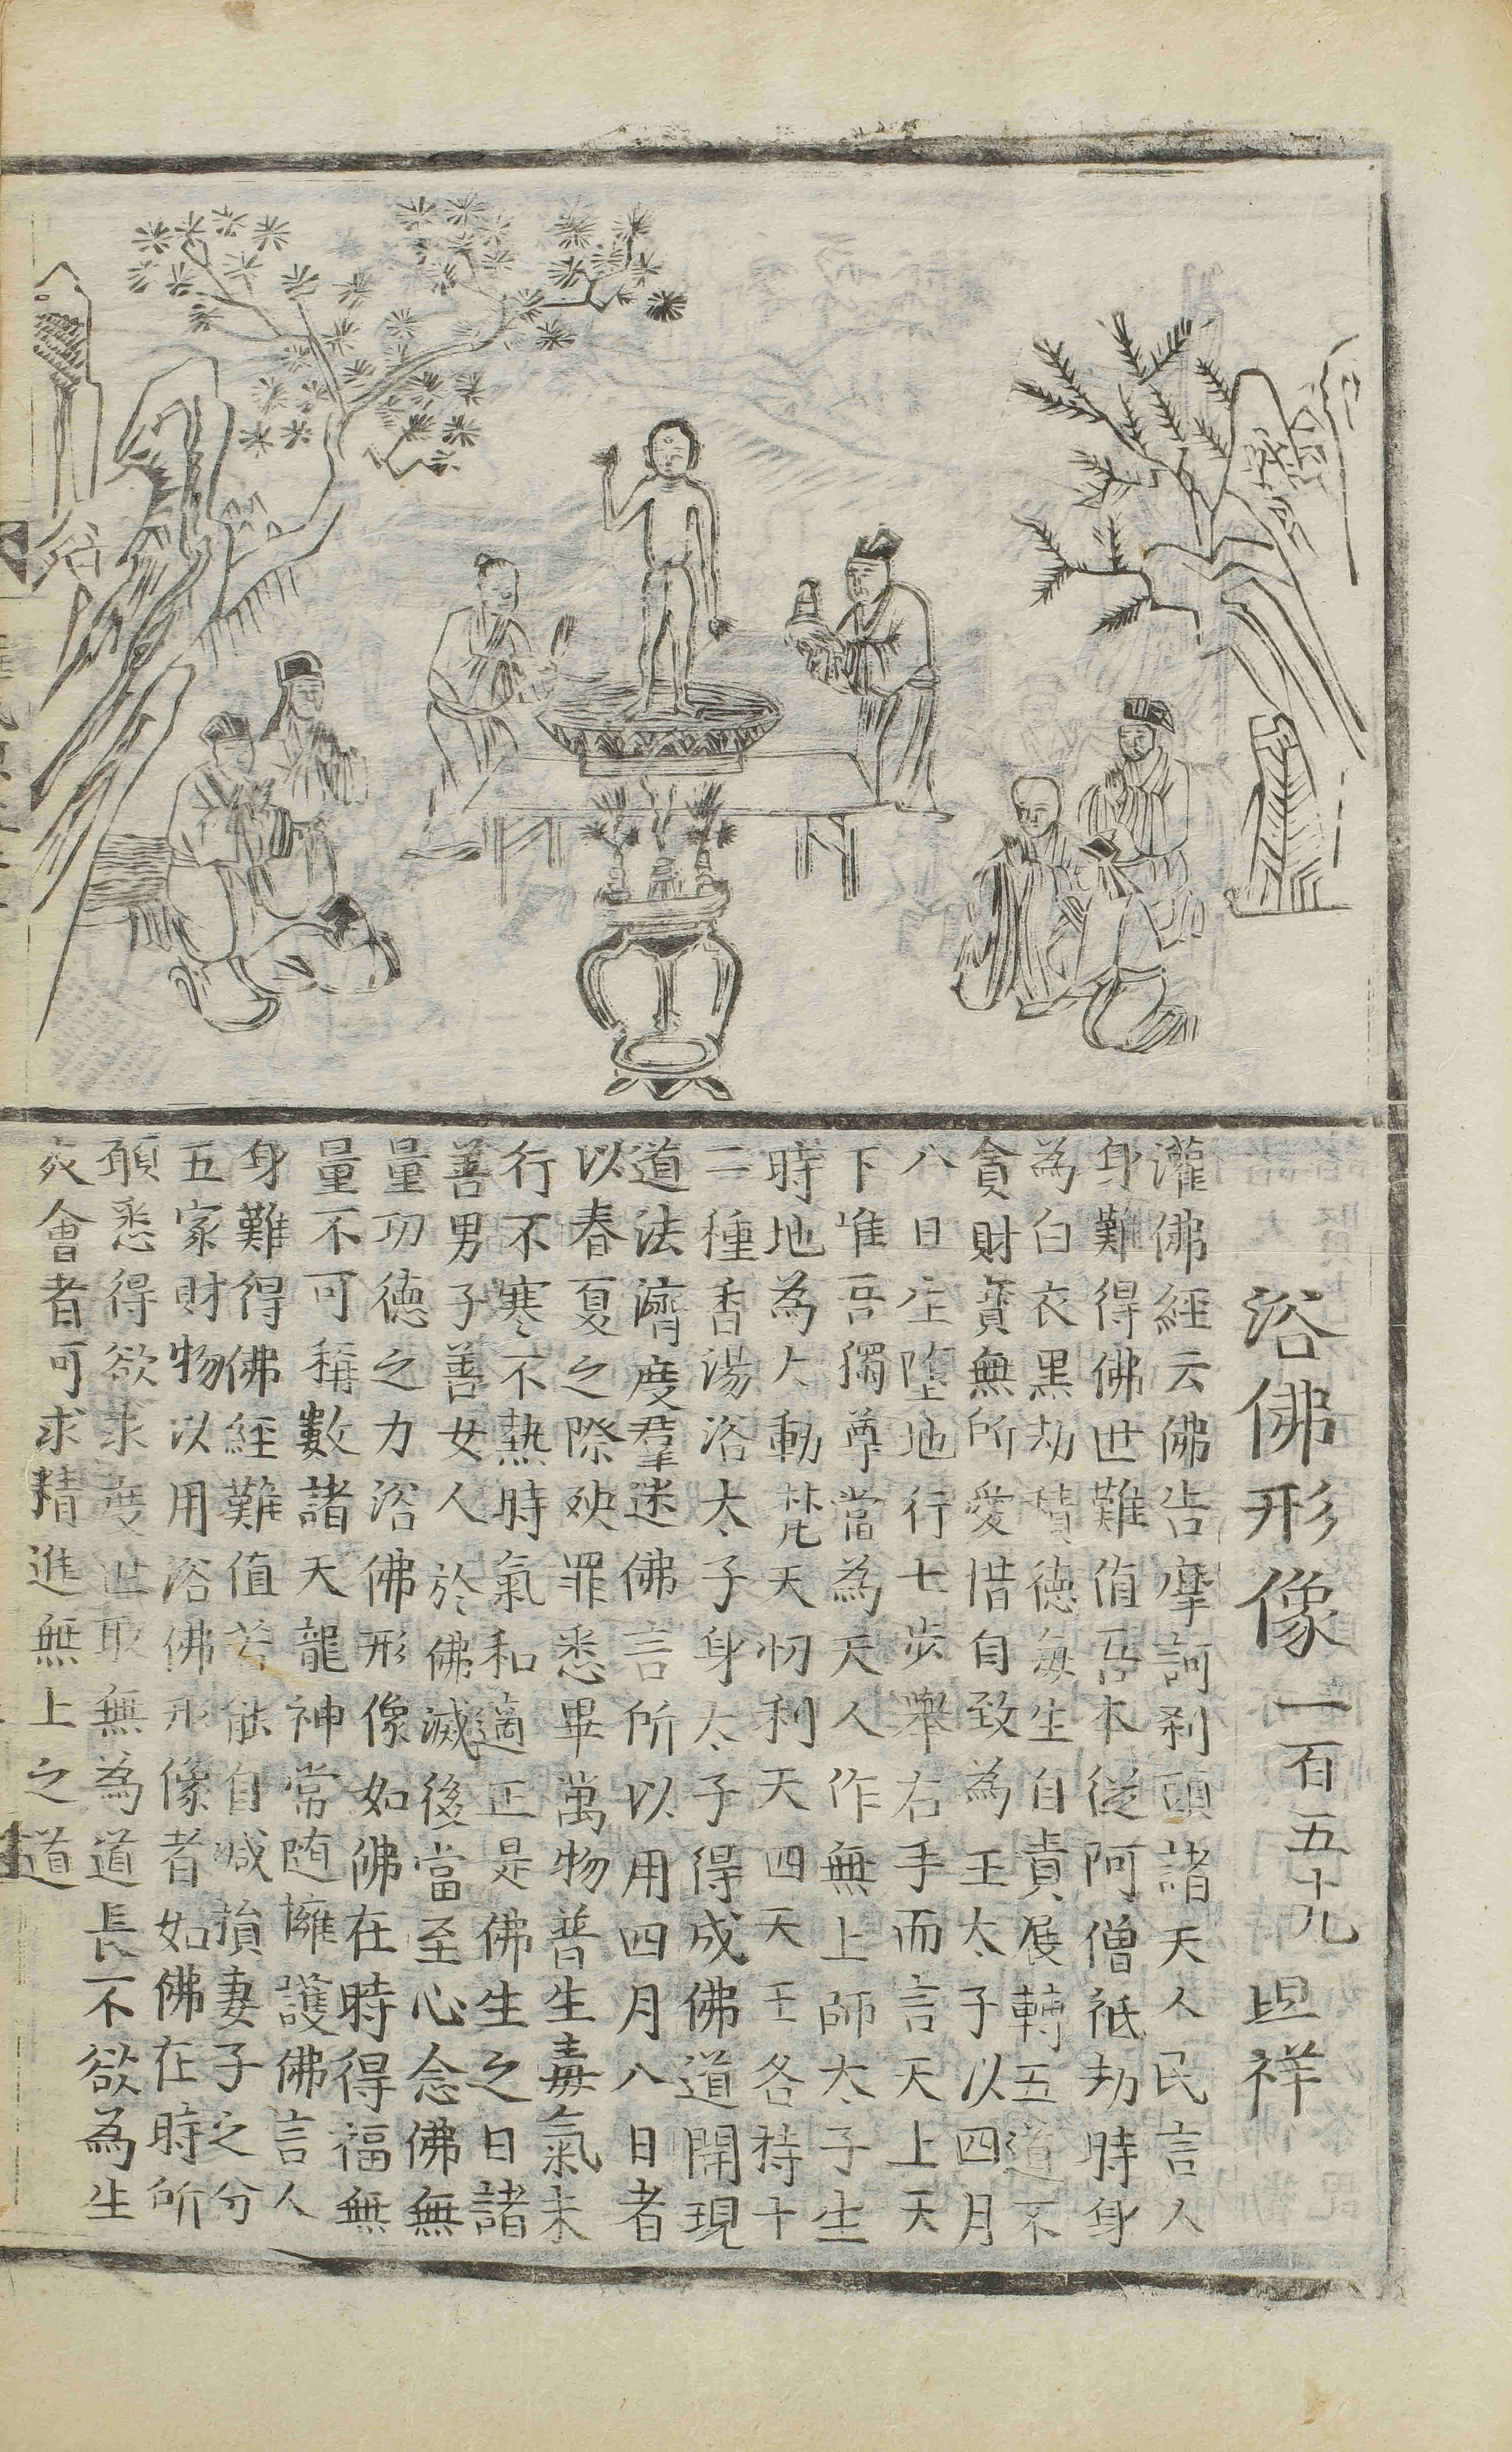 浴佛形像一百五十九 坦祥
灌佛經云佛告摩訶刹頭諸天人民言人
身難得佛世難值吾本從阿僧祗劫時身
為白衣黑劫積德每生自責展轉五道不
貪財寳無所愛惜自致為王太子以四月
八日生墮地行七步舉右手而言天上天
下唯吾獨尊當為天人作無上師太子生
時地為大動梵天忉利天四天王各持十
二種香湯浴太子身太子得成佛道開現
道法濟度羣迷佛言所以用四月八日者
以春夏之際殃罪悉畢萬物普生毒氣未
行不寒不熱時氣和適正是佛生之日諸
善男子善女人於佛滅後當至心念佛無
量功德之力浴佛形像如佛在時得福無
量不可稱數諸天龍神常隨擁護佛言人
身難得佛經難值若能自減損妻子之分
五家財物以用浴佛形像者如佛在時所
願悉得欲求度世取無為道長不欲為生
死會者可求精進無上之道
浴